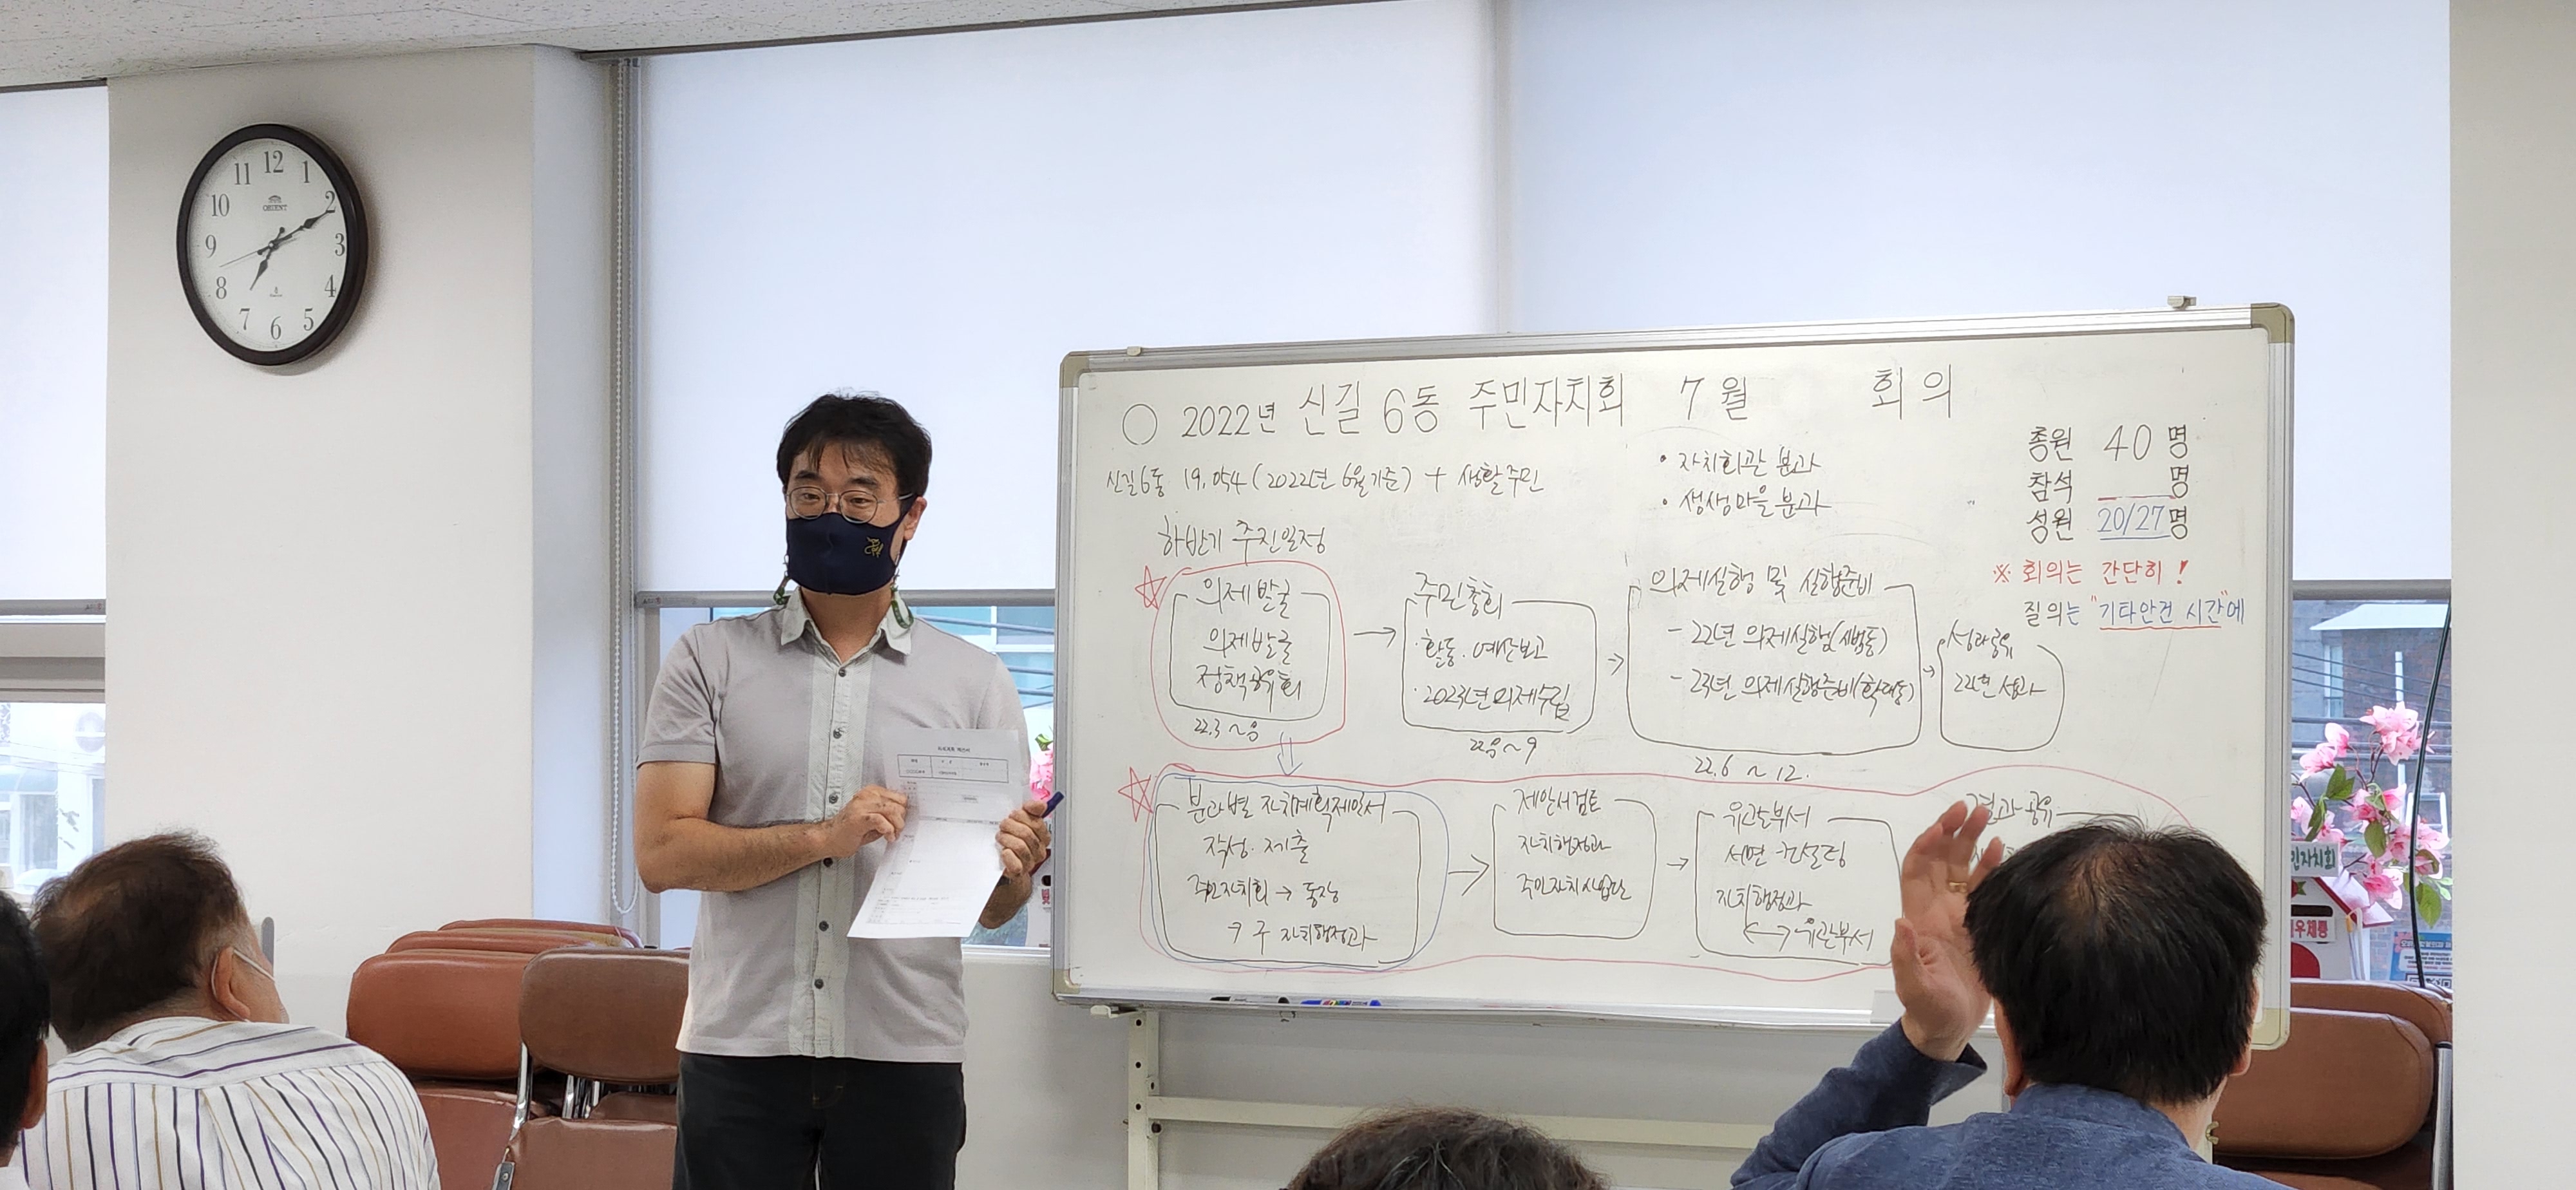 12
1
2
3
4
5
6
7
8
9
10
11
ORIENT
○ 2022년 신길6동 주민자치회 7월 회의
신길6동 19,054 (2022년 6월기준) + 생활주민
• 자치회관 분과
• 생생마을분과
총원 40명
참석 명
성원 20/27명
※ 회의는 간단히!
질의는 "기타안건 시간"에
하반기 추진일정
의제발굴
의제발굴
정책공유회
22.3 ~
→
주민총회
· 활동. 예산보고
· 2023년 의제수립
~ 9
→
의제실행 및 실행준비
- 22년 의제실행
- 23년 의제실행준비
22.6 ~ 12.
→
성과공유
22년 성과
분과별 자치계획제안서
작성. 제출
주민자치회 → 동장
→ 구 자치행정과
→
제안서검토
자치행정과
주민자치사업단
→
유관부서
서면 컨설팅
자치행정과
↔ 유관부서
결과공유
민자치회
우체통